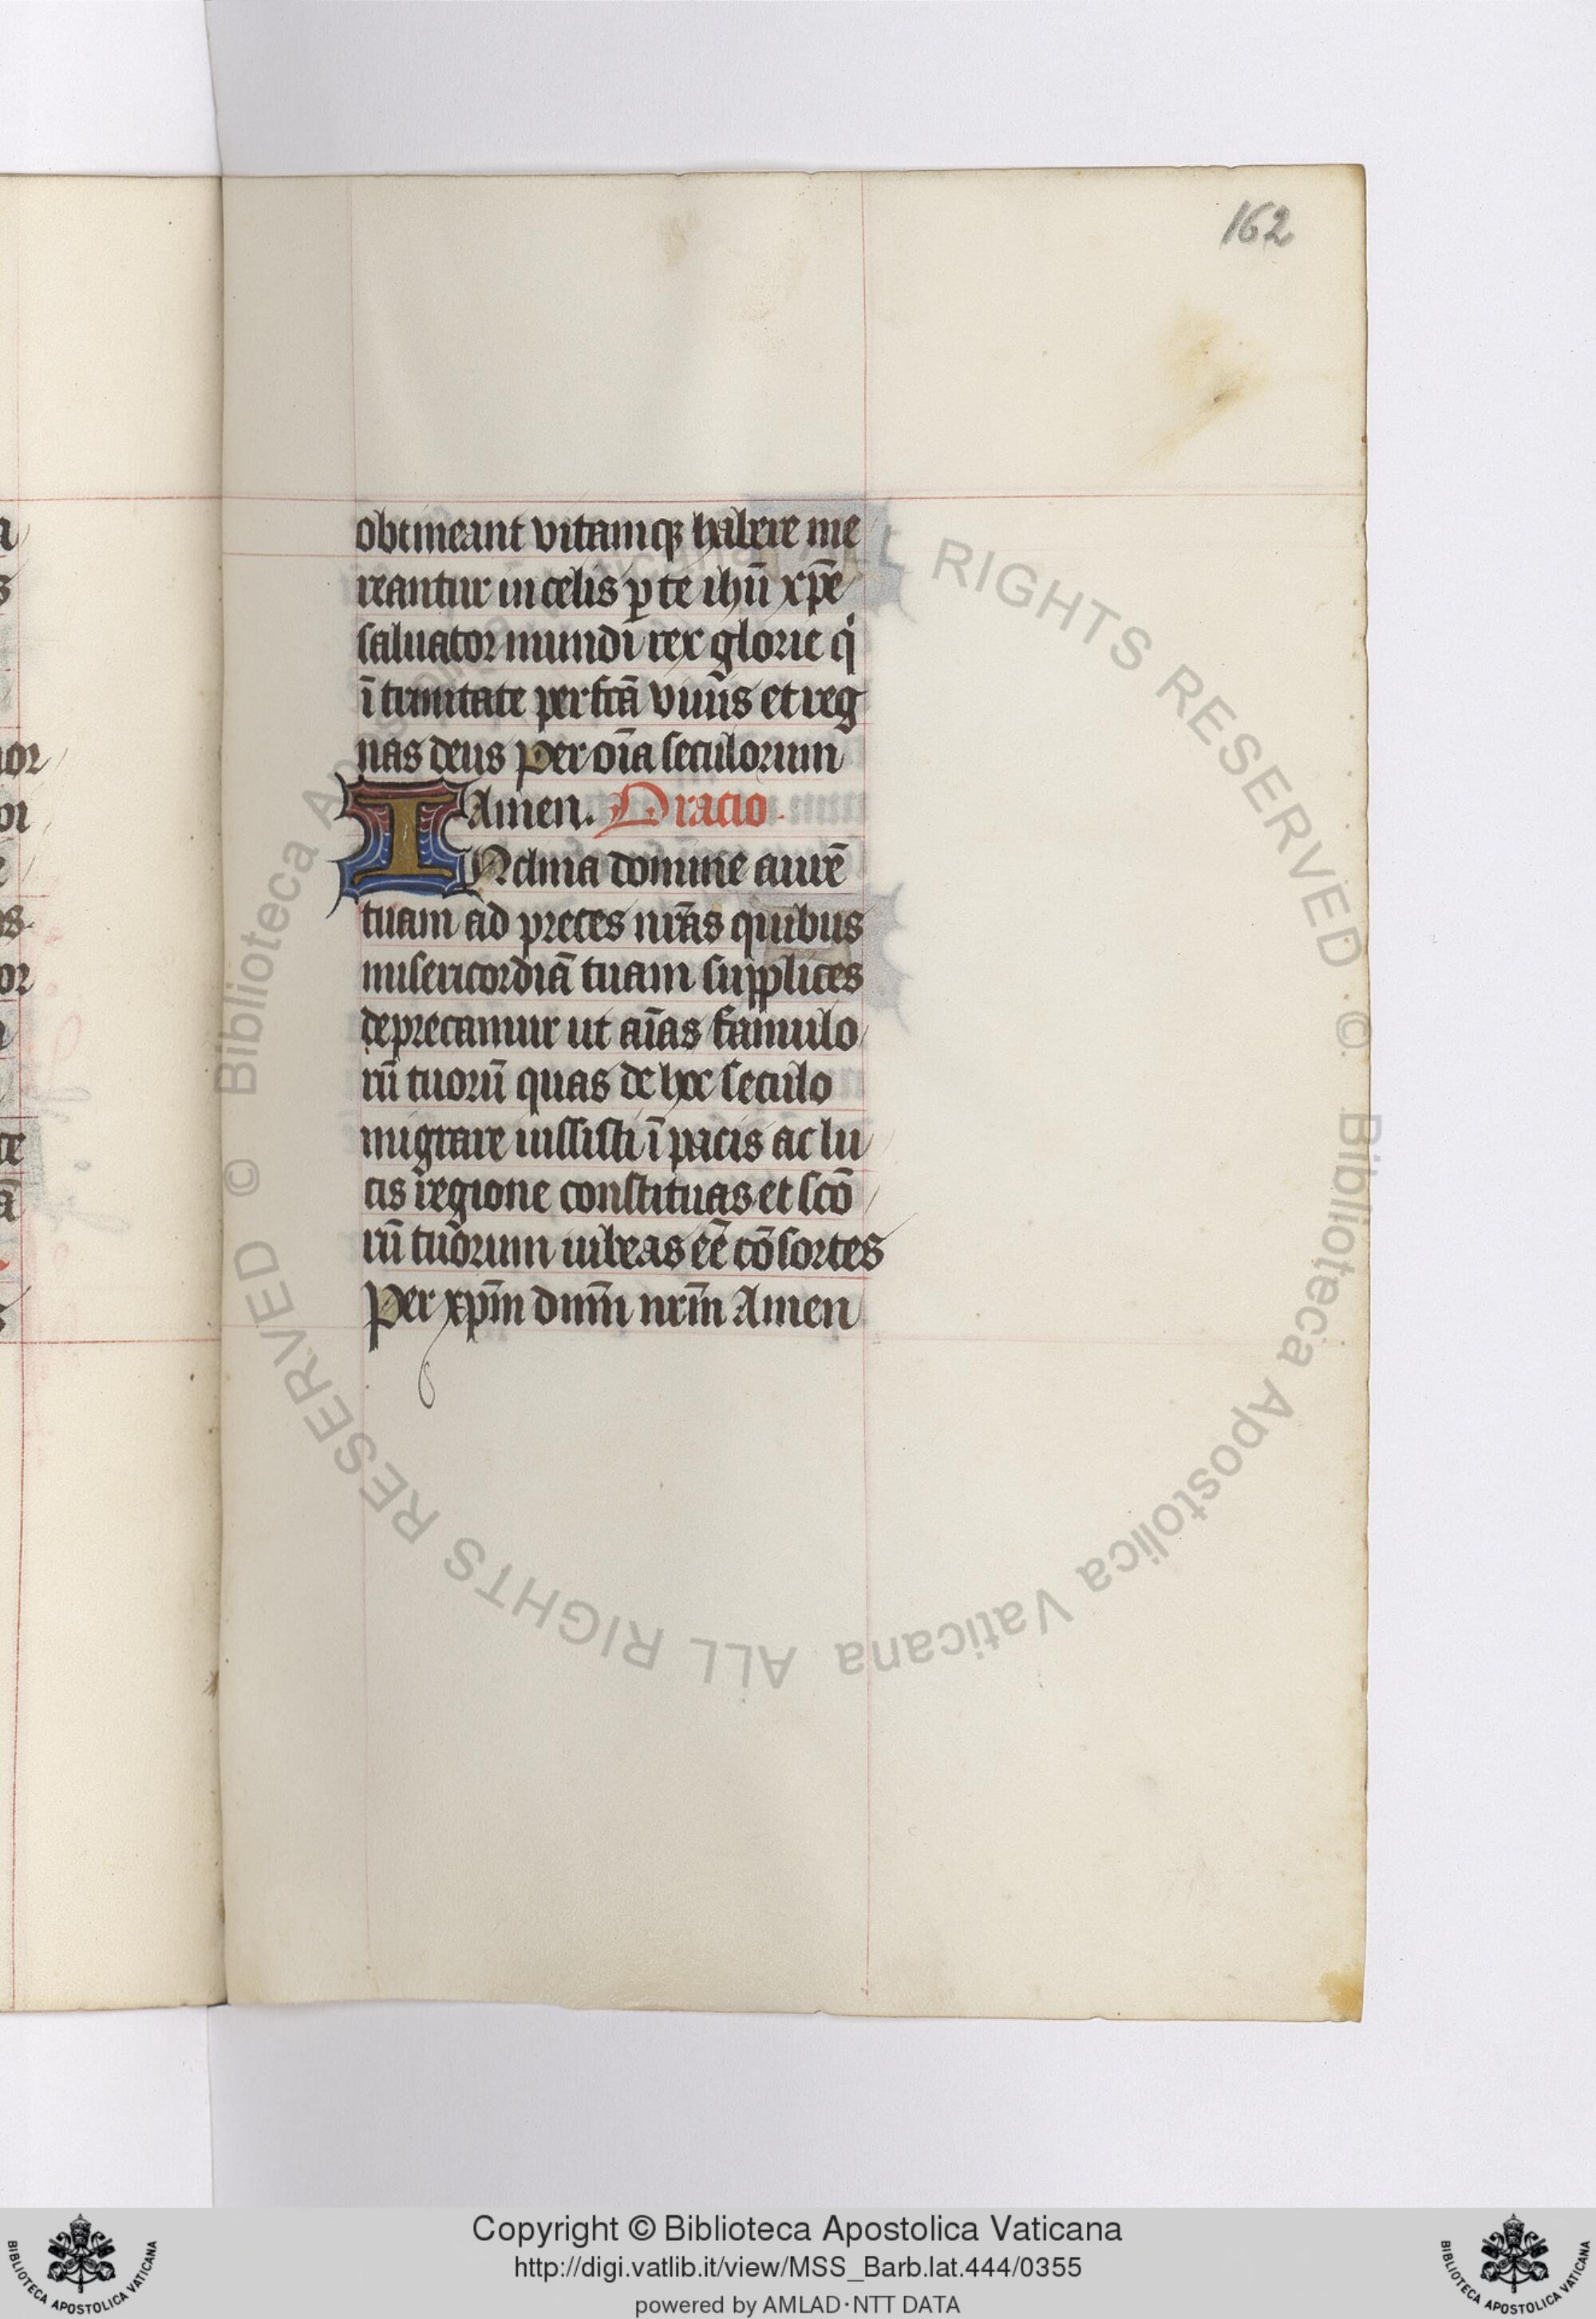 162
obtineant vitamqꝫ habere me
reantur in celis ꝑ te ihū xp̄e
saluator mundi rex glorie qͥ
ī trinitate perfcā viuis et reg
nas deus Per oīa seculorum
Amen. Oratio.
INclina domine aurē
tuam ad preces nr̄as quibus
misericordiā tuam supplices
deprecamur ut aīas famulo
rū tuorū quas de hoc seculo
migrare iussisti ī pacis ac lu
cis regione constituas et scō
rū tuorum iubeas eē cōsortes
Per xp̄m dnm̄ nrm̄ Amen
© Biblioteca Apostolica Vaticana ALL RIGHTS RESERVED © Biblioteca Apostolica Vaticana ALL RIGHTS RESERVED
Copyright © Biblioteca Apostolica Vaticana
http://digi.vatlib.it/view/MSS_Barb.lat.444/0355
powered by AMLAD·NTT DATA
BIBLIOTECA APOSTOLICA VATICANA
BIBLIOTECA APOSTOLICA VATICANA